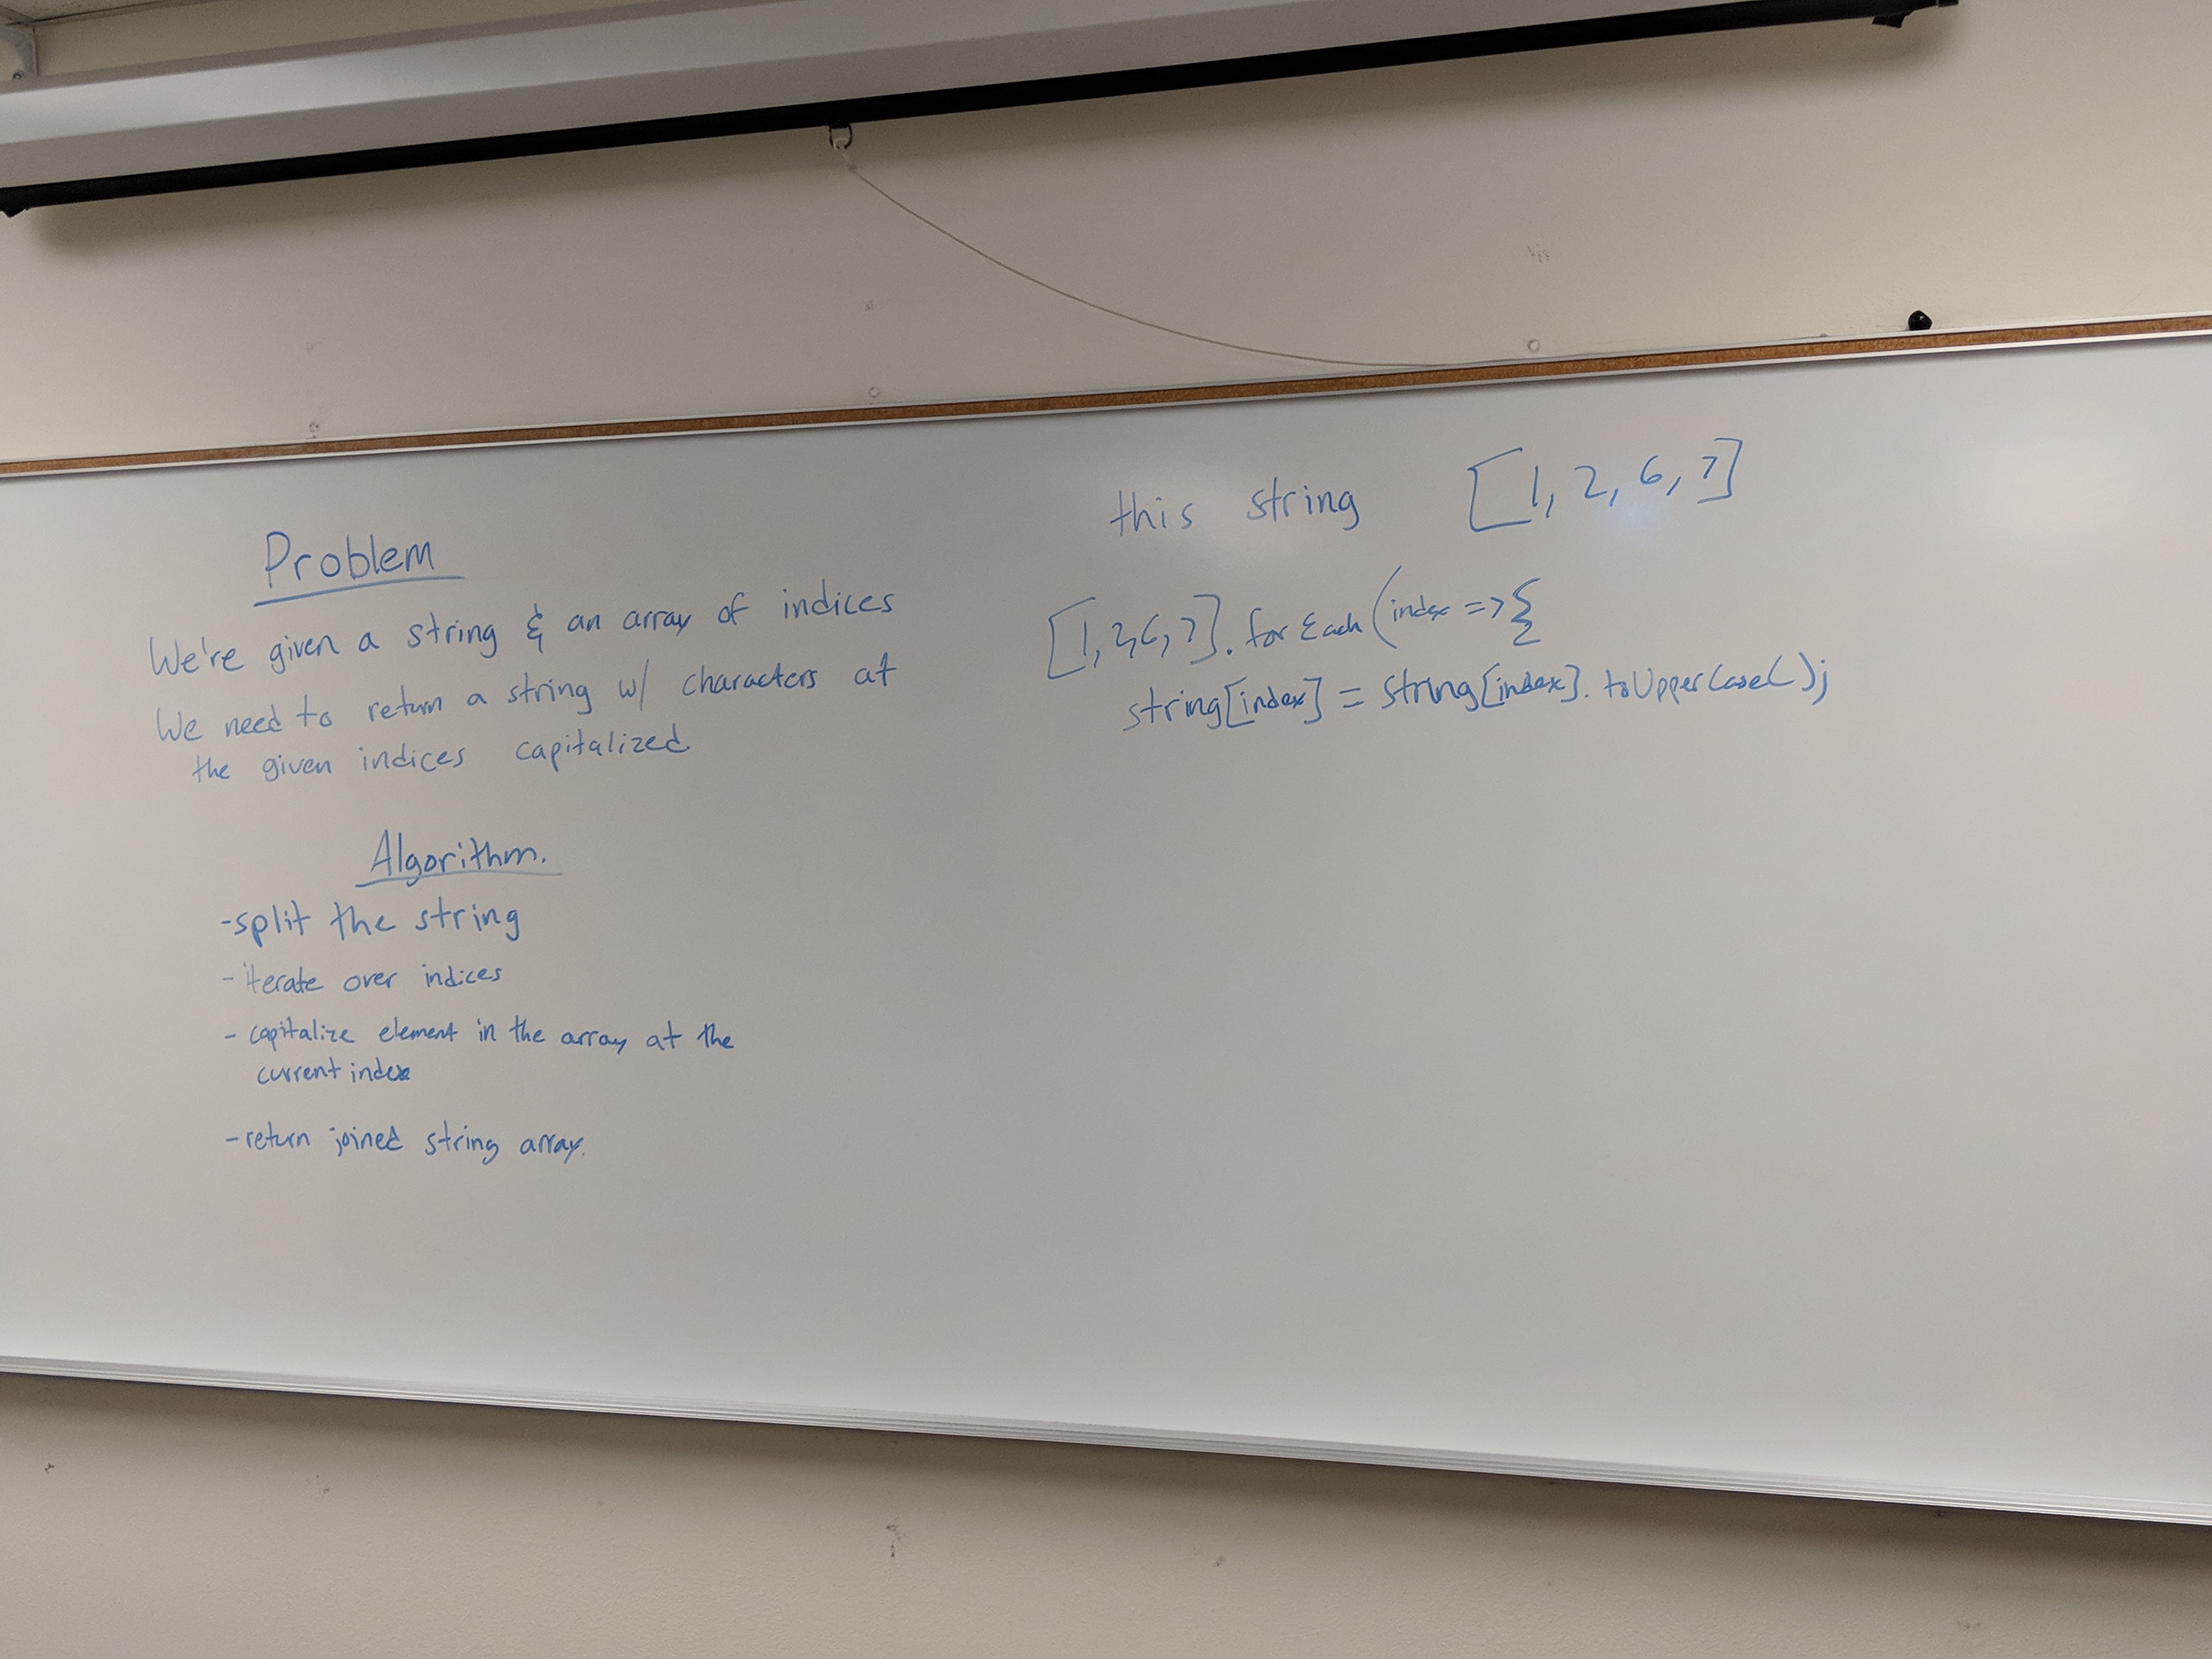 Problem
We're given a string & an array of indices
We need to return a string w/ characters at
the given indices capitalized
Algorithm.
-split the string
- iterate over indices
- capitalize element in the array at the
current index
-return joined string array.
this string [1, 2, 6, 7]
[1, 2, 6, 7]. forEach (index => {
string[index] = string[index]. toUpperCase();